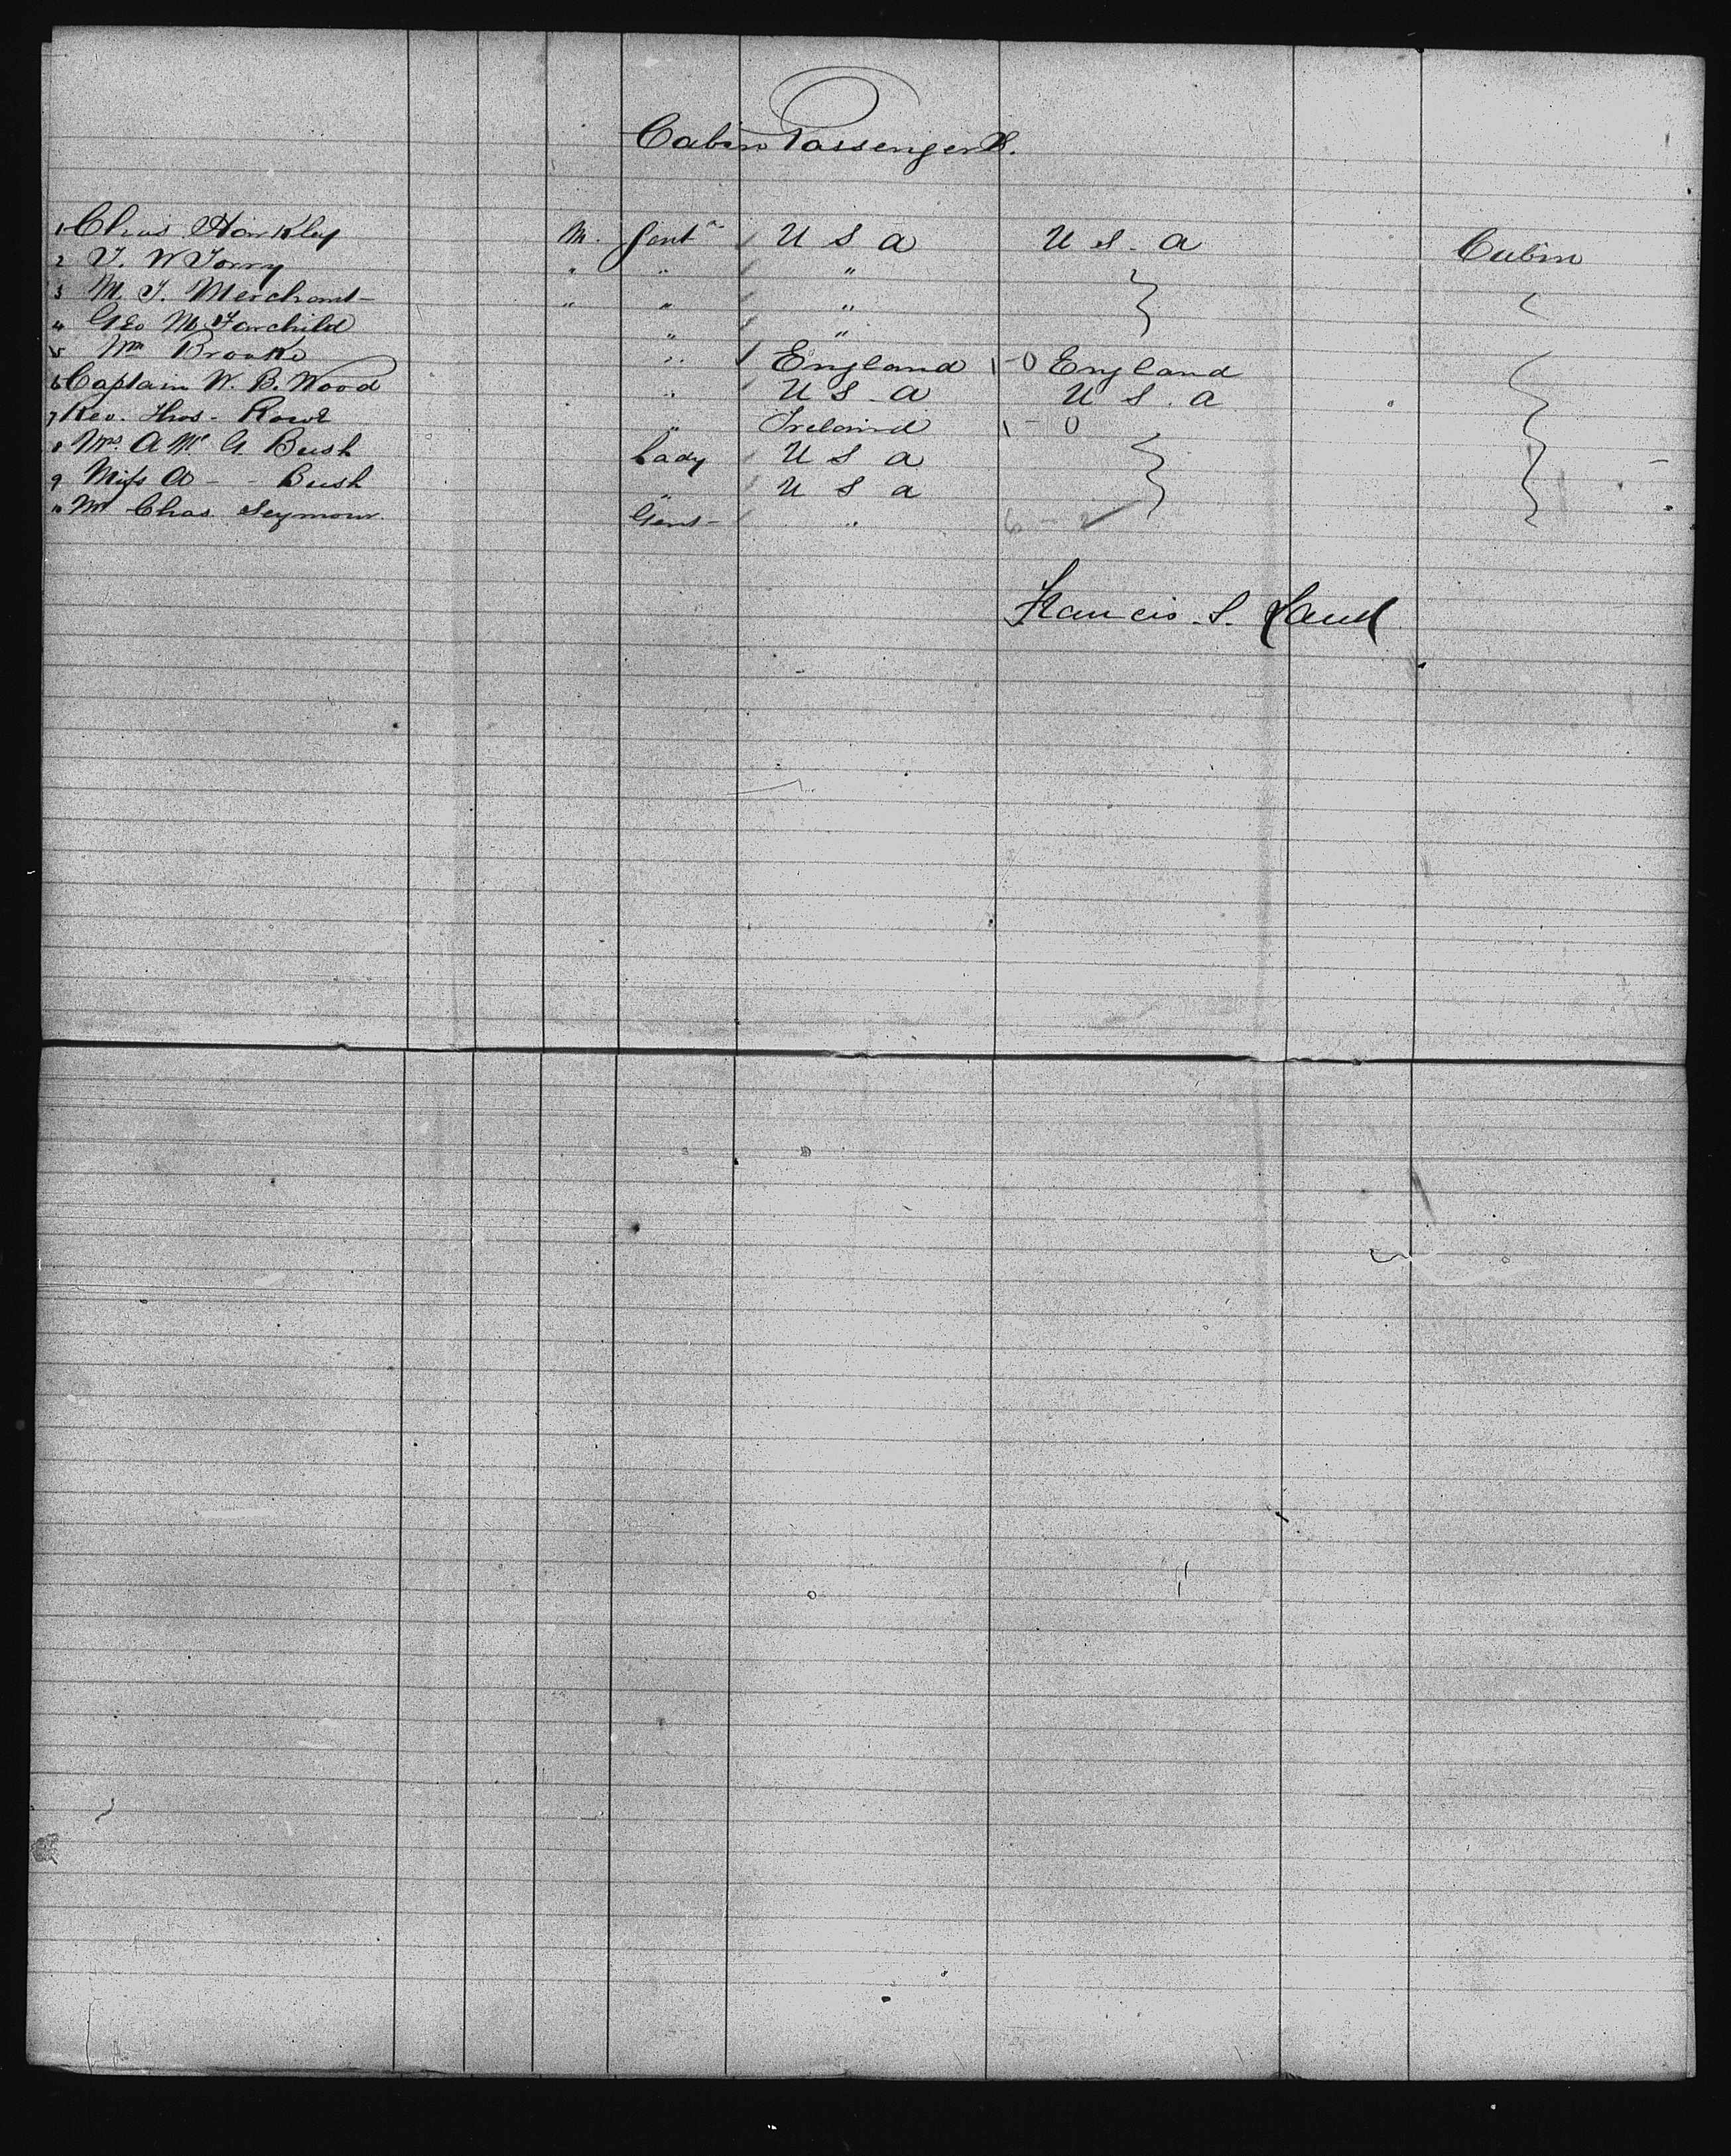 Cabin Passengers.
1 Chas Hankley M. Gentn U S A U S. A Cabin
2 T. W Torry " " "
3 M. T. Merchant " " "
4 Geo M Fairchild " "
5 Wm Brooke " England 1-0 England
6 Captain W. B. Wood " U S. A U S. A
7 Rev. Thos. " Ireland 1-0
8 Mrs. A Mc G. Bush Lady U S A
9 Miss A - - Bush " U S A
10 Mr Chas Seymour. Gent- " 6 - 2
Francis. S. Land